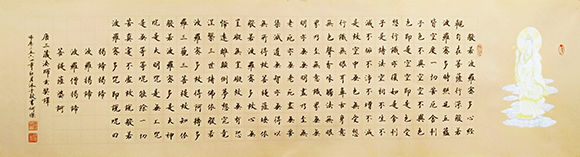 般若波羅蜜多心經
觀自在菩薩行深般若
波羅蜜多時照見五蘊
皆空度一切苦厄舍利
子色不異空空不異色
色即是空空即是色受
想行識亦復如是舍利
子是諸法空相不生不
滅不垢不淨不增不減
是故空中無色無受想
行識無眼耳鼻舌身意
無色聲香味觸法無眼
界乃至無意識界無無
明亦無無明盡乃至無
老死亦無老死盡無苦
集滅道無智亦無得以
無所得故菩提薩埵依
般若波羅蜜多故心無
罣礙無罣礙故無有恐
怖遠離顛倒夢想究竟
涅槃三世諸佛依般若
波羅蜜多故得阿耨多
羅三藐三菩提故知
般若波羅蜜多是大神
呪是大明呪是無上呪
是無等等呪能除一切
苦真實不虛故說般若
波羅蜜多呪即說呪曰
揭諦揭諦
波羅揭諦
波羅僧揭諦
菩提薩婆訶
唐三藏法師玄奘譯